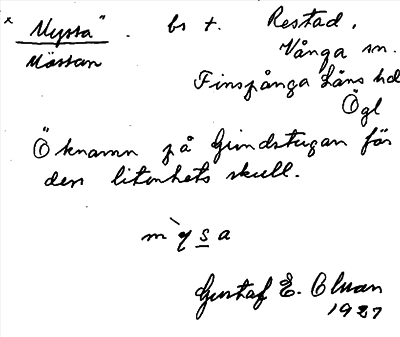 × "Myssa" . bs t. Restad,
Mössan Vånga sn.
Finspånga Läns hd
Ögl
Öknamn på Grindstugan för
den litenhets skull.
m`ysa
Gustaf E. Olsson
1927